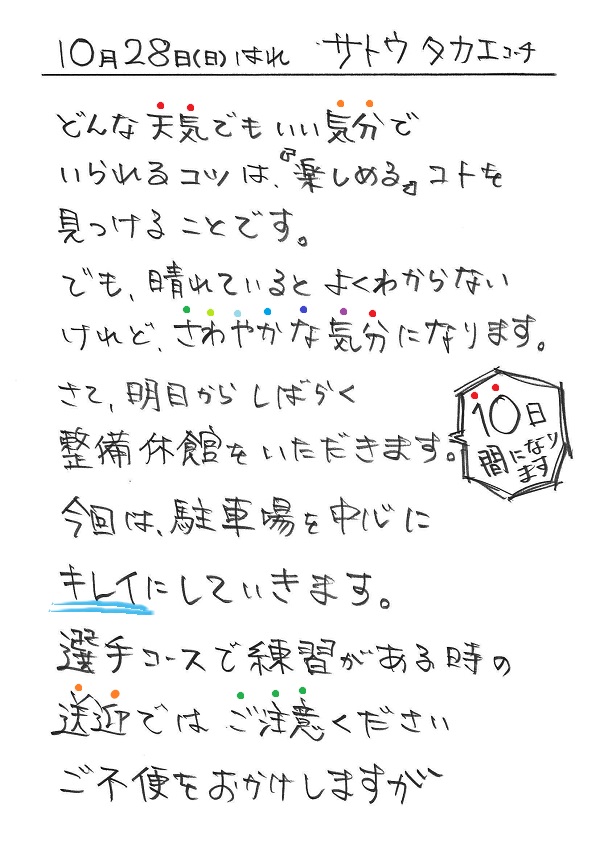 10月28日(日)はれ サトウタカエコーチ
どんな天気でもいい気分で
いられるコツは、『楽しめる』コトを
見つけることです。
でも、晴れているとよくわからない
けれど、さわやかな気分になります。
さて、明日からしばらく
整備休館をいただきます。
10日
間になり
ます
今回は、駐車場を中心に
キレイにしていきます。
選手コースで練習がある時の
送迎ではご注意ください
ご不便をおかけしますが